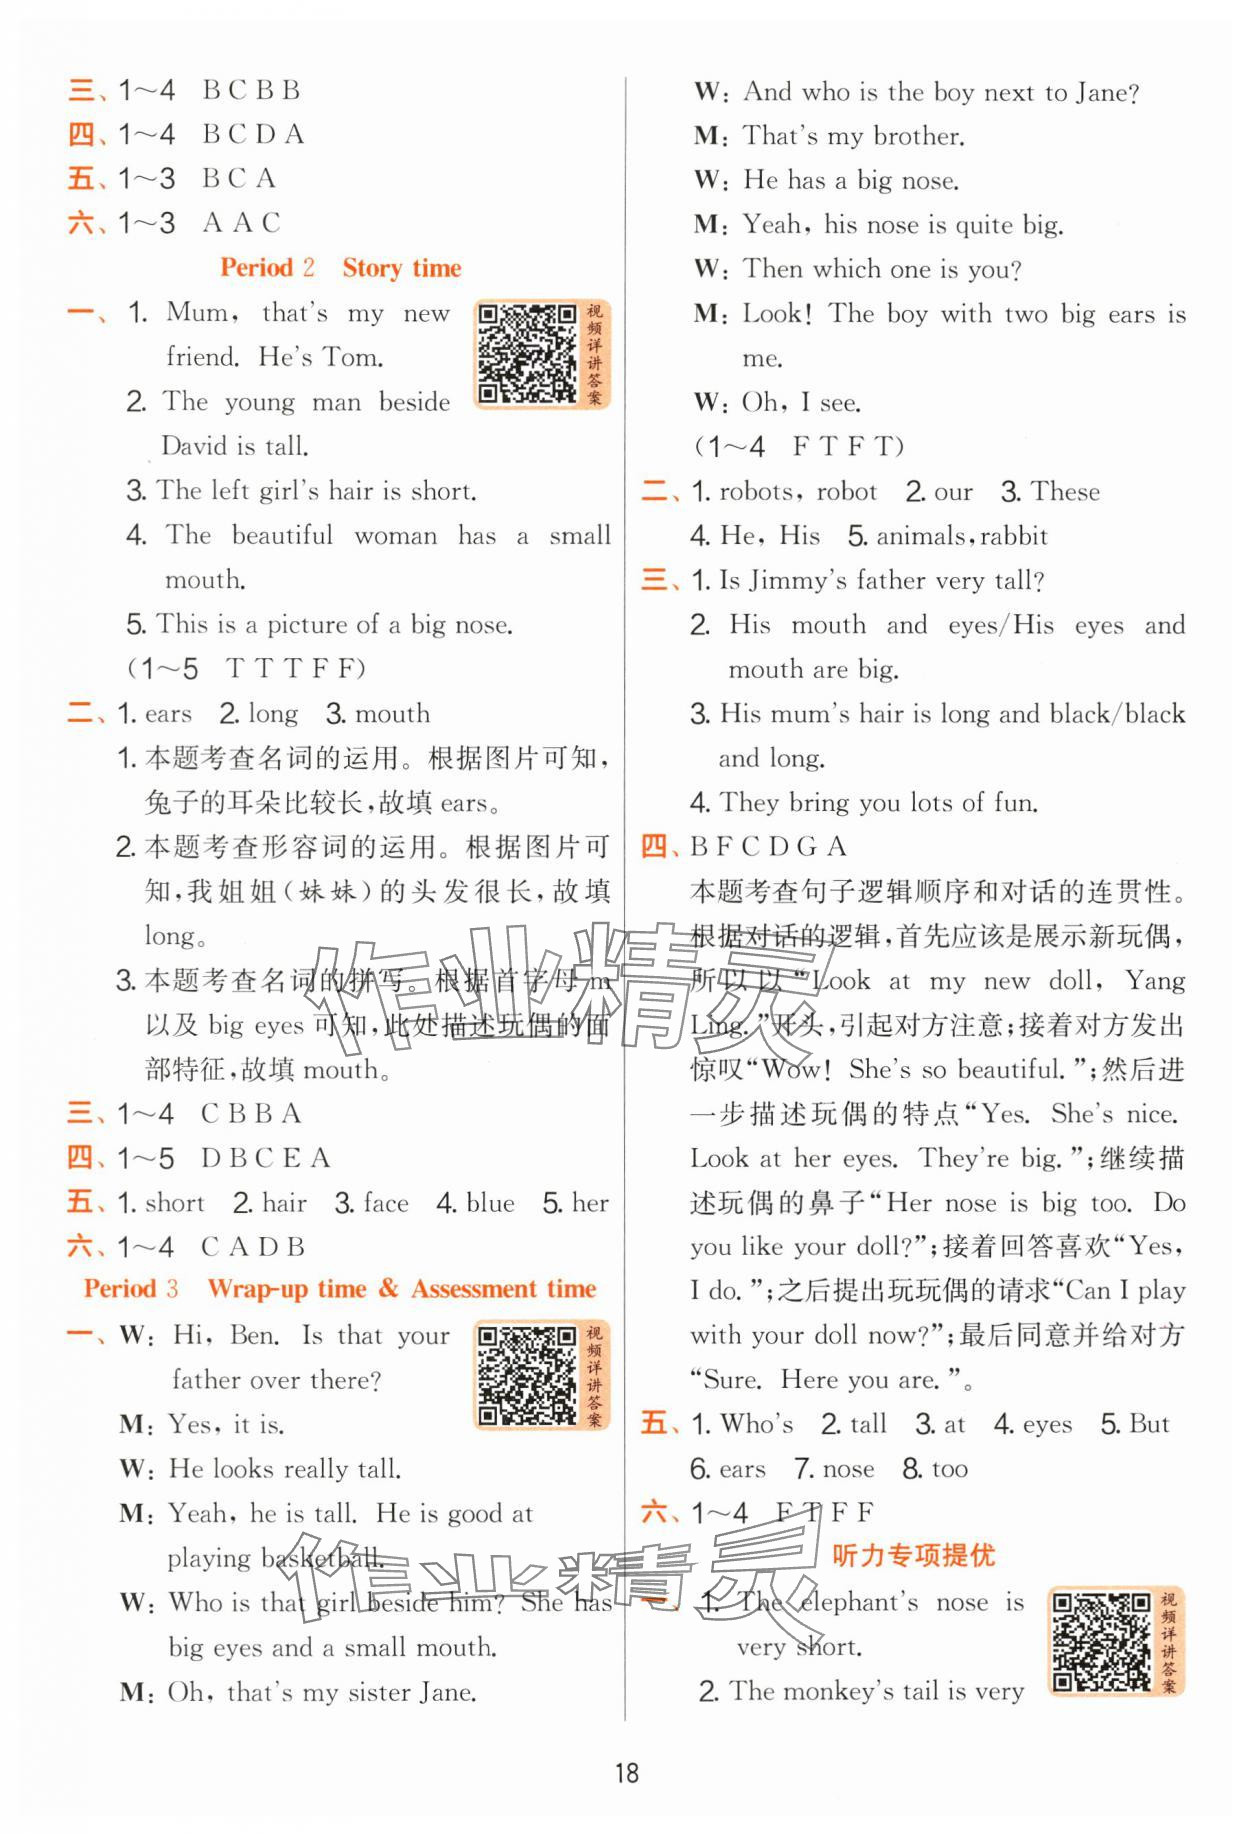 三、1～4 B C B B
四、1～4 B C D A
五、1～3 B C A
六、1～3 A A C
Period 2 Story time
一、1. Mum, that's my new
friend. He's Tom.
2. The young man beside
David is tall.
3. The left girl's hair is short.
4. The beautiful woman has a small
mouth.
5. This is a picture of a big nose.
(1～5 T T T F F)
二、1. ears 2. long 3. mouth
1. 本题考查名词的运用。根据图片可知，
兔子的耳朵比较长，故填 ears。
2. 本题考查形容词的运用。根据图片可
知，我姐姐(妹妹)的头发很长，故填
long。
3. 本题考查名词的拼写。根据首字母 m
以及 big eyes 可知，此处描述玩偶的面
部特征，故填 mouth。
三、1～4 C B B A
四、1～5 D B C E A
五、1. short 2. hair 3. face 4. blue 5. her
六、1～4 C A D B
Period 3 Wrap-up time & Assessment time
一、W: Hi, Ben. Is that your
father over there?
M: Yes, it is.
W: He looks really tall.
M: Yeah, he is tall. He is good at
playing basketball.
W: Who is that girl beside him? She has
big eyes and a small mouth.
M: Oh, that's my sister Jane.
视频详讲答案
视频详讲答案
W: And who is the boy next to Jane?
M: That's my brother.
W: He has a big nose.
M: Yeah, his nose is quite big.
W: Then which one is you?
M: Look! The boy with two big ears is
me.
W: Oh, I see.
(1～4 F T F T)
二、1. robots, robot 2. our 3. These
4. He, His 5. animals, rabbit
三、1. Is Jimmy's father very tall?
2. His mouth and eyes/His eyes and
mouth are big.
3. His mum's hair is long and black/black
and long.
4. They bring you lots of fun.
四、B F C D G A
本题考查句子逻辑顺序和对话的连贯性。
根据对话的逻辑，首先应该是展示新玩偶，
所以以“Look at my new doll, Yang
Ling.”开头，引起对方注意；接着对方发出
惊叹“Wow! She's so beautiful.”；然后进
一步描述玩偶的特点“Yes. She's nice.
Look at her eyes. They're big.”；继续描
述玩偶的鼻子“Her nose is big too. Do
you like your doll?”；接着回答喜欢“Yes,
I do.”；之后提出玩玩偶的请求“Can I play
with your doll now?”；最后同意并给对方
“Sure. Here you are.”。
五、1. Who's 2. tall 3. at 4. eyes 5. But
6. ears 7. nose 8. too
六、1～4 F T F F
听力专项提优
一、1. The elephant's nose is
very short.
2. The monkey's tail is very
视频详讲答案
作业精灵
作业精灵
18